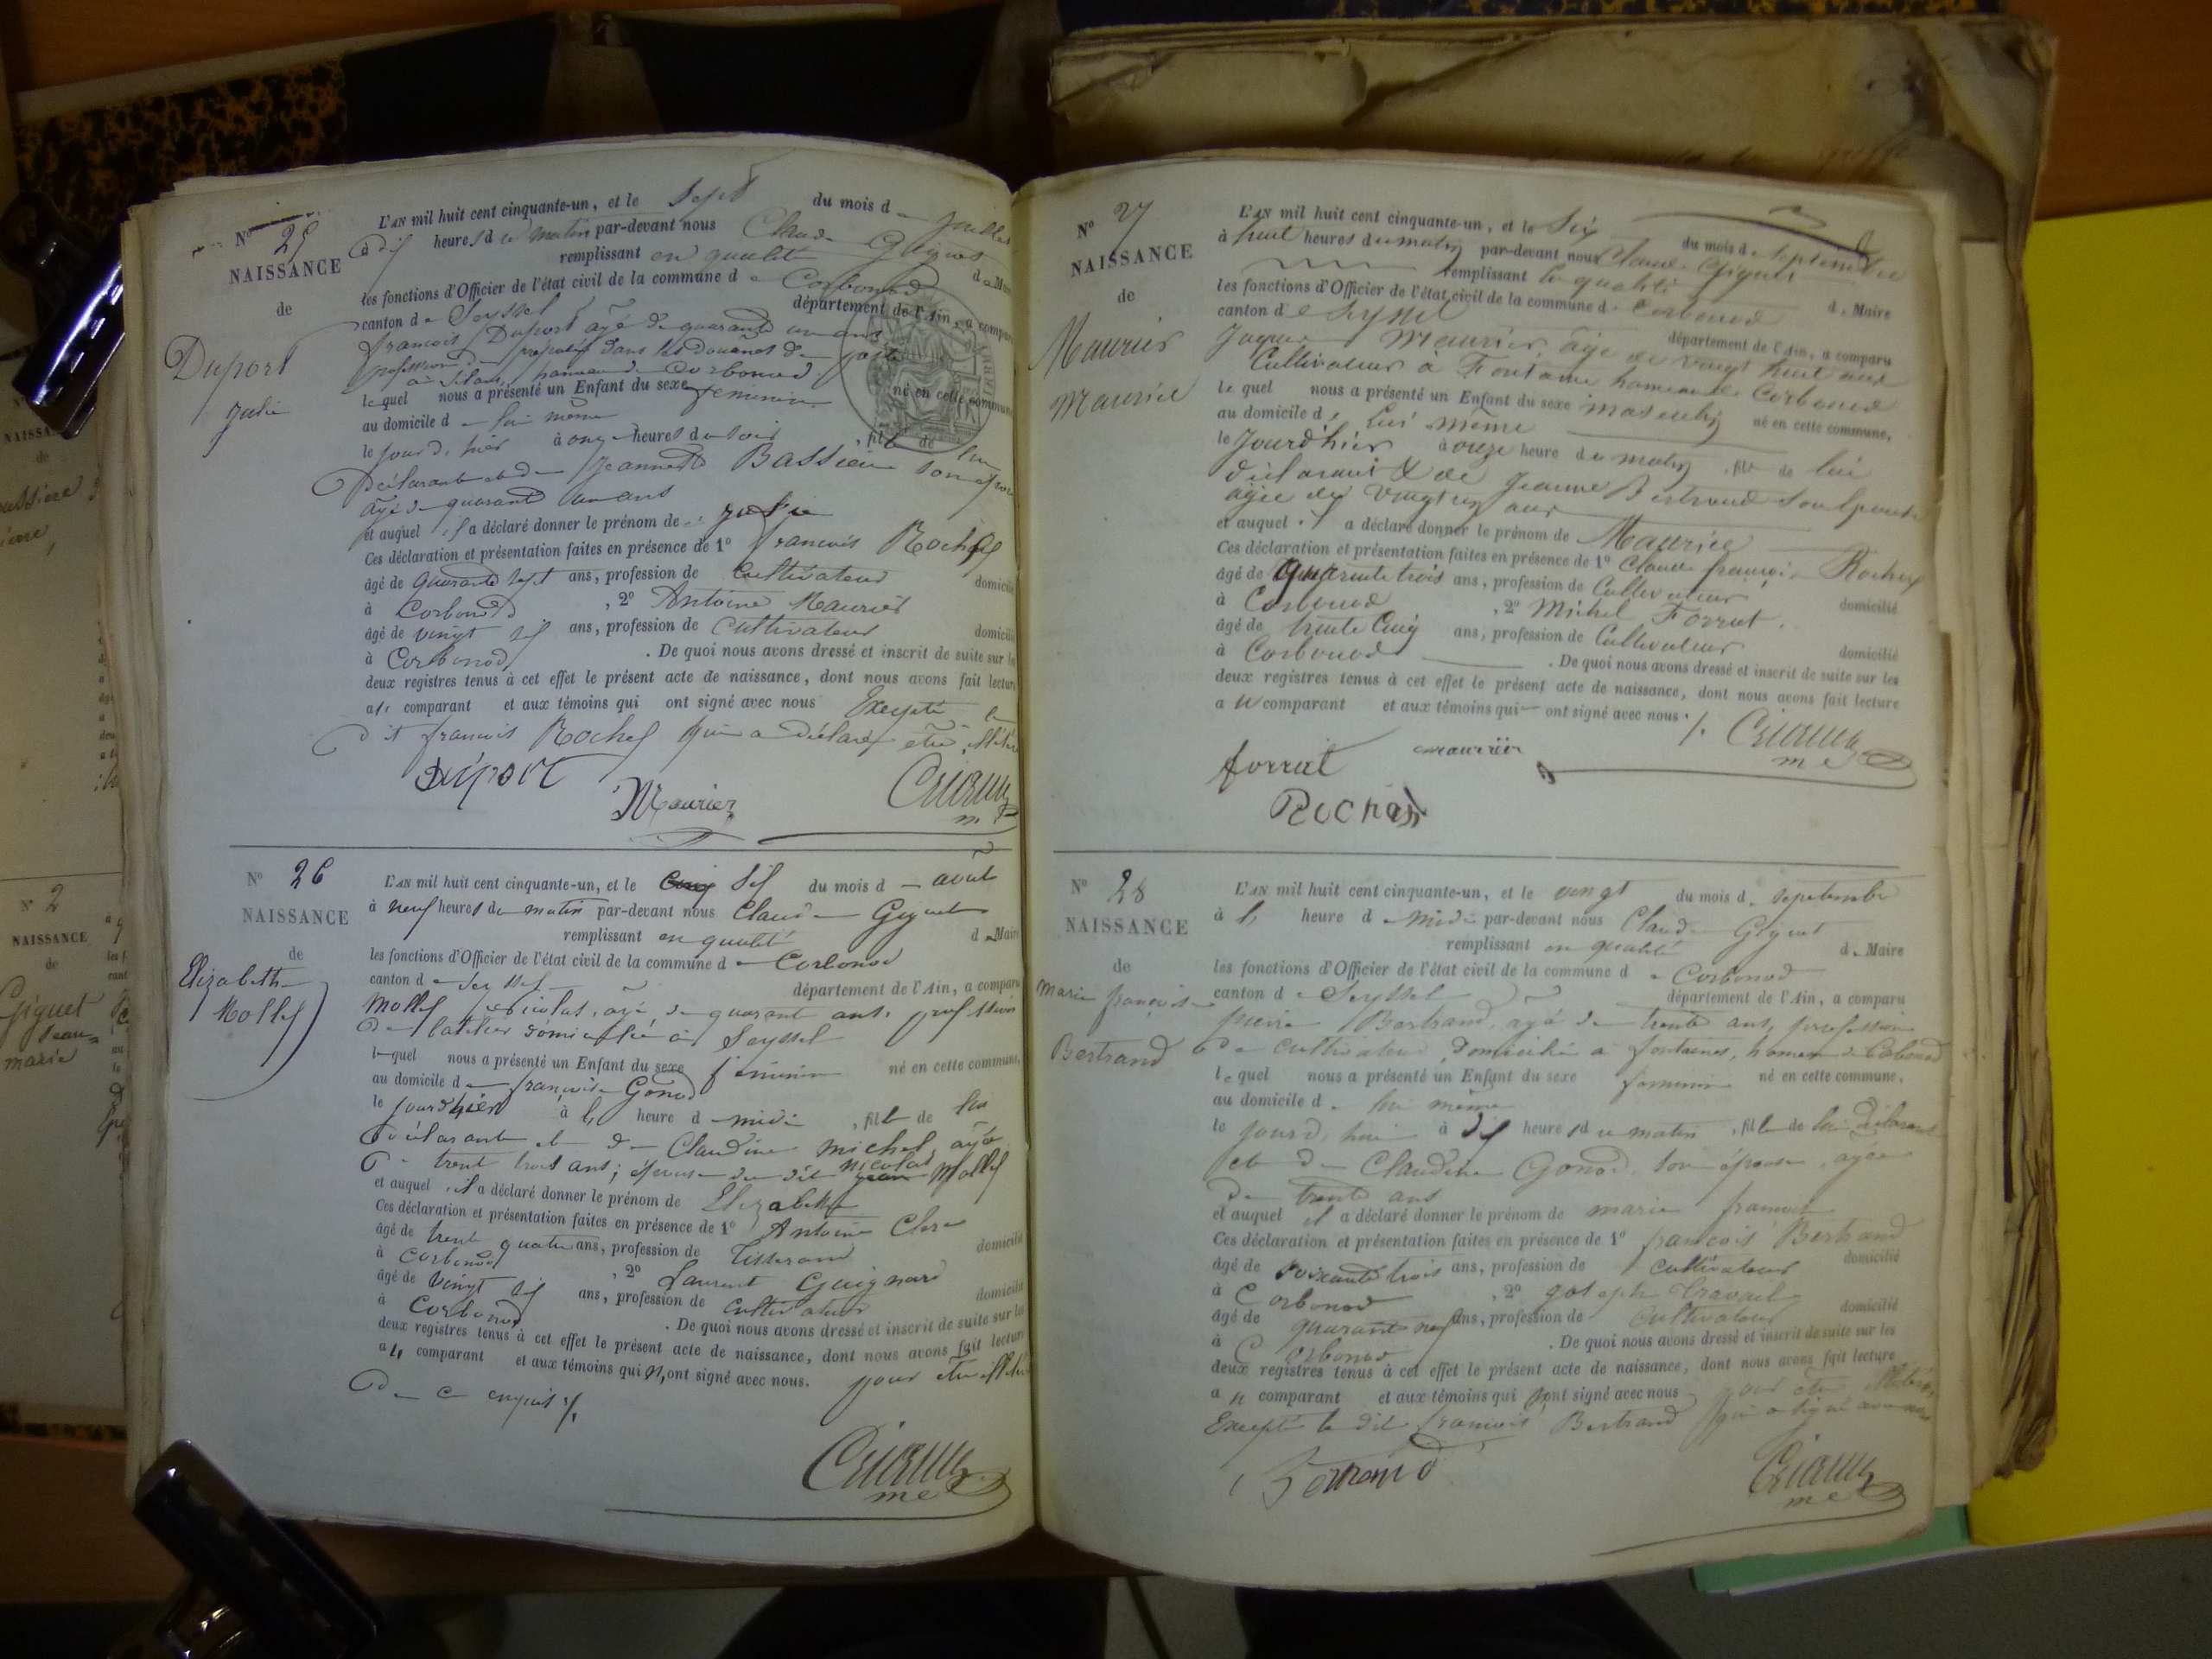 N° 25
NAISSANCE
de
Duport
Julie
L'AN mil huit cent cinquante-un, et le Sept du mois d e Juillet
à dix heures du matin par-devant nous Claude Giguet
remplissant en qualité d e Maire
les fonctions d'Officier de l'état civil de la commune d e Corbonod
canton d e Seyssel département de l'Ain, a comparu
françois Duport âgé de quarante un ans
profession de préposé dans les douanes de
hameau de Corbonod
le quel nous a présenté un Enfant du sexe féminin né en cette commune
au domicile d e lui même
le jour d'hier à onze heures du soir, fille de lui
Déclarant et de Jeannette Bassieu son épouse
âgé de quarante un ans
et auquel il a déclaré donner le prénom de Julie
Ces déclaration et présentation faites en présence de 1° françois Rochas
âgé de quarante sept ans, profession de Cultivateur domicilié
à Corbonod, 2° Antoine Maurier
âgé de vingt six ans, profession de Cultivateur domicilié
à Corbonod. De quoi nous avons dressé et inscrit de suite sur les
deux registres tenus à cet effet le présent acte de naissance, dont nous avons fait lecture
a le comparant et aux témoins qui ont signé avec nous Excepté le
dit françois Rochas qui a déclaré être illitéré
Duport
Maurier
N° 26
NAISSANCE
de
Elizabeth
Mollex
L'AN mil huit cent cinquante-un, et le Cinq Six du mois d août
à neuf heures du matin par-devant nous Claude Giguet
remplissant en qualité d e Maire
les fonctions d'Officier de l'état civil de la commune d e Corbonod
canton d e Seyssel département de l'Ain, a comparu
Mollex Nicolas, âgé de quarante ans, profession
De batelier domicilié à Seyssel
le quel nous a présenté un Enfant du sexe féminin né en cette commune,
au domicile d e françoise Gonod
le jourdhier à 1 heure d e midi, fille de lui
Déclarant et de Claudine Michel âgée
De trente trois ans; épouse du dit Nicolas Mollex
et auquel il a déclaré donner le prénom de Elizabeth
Ces déclaration et présentation faites en présence de 1° Antoine Clerc
âgé de trente quatre ans, profession de Tisserand domicilié
à Corbonod, 2° Laurent Guignard
âgé de vingt six ans, profession de Cultivateur domicilié
à Corbonod. De quoi nous avons dressé et inscrit de suite sur les
deux registres tenus à cet effet le présent acte de naissance, dont nous avons fait lecture
a u comparant et aux témoins qui n'ont signé avec nous. pour être illitéré
De ce enquis
N° 27
NAISSANCE
de
Maurier
Maurice
L'AN mil huit cent cinquante-un, et le Six du mois d e Septembre
à huit heures du matin par-devant nous Claude Giguet
remplissant la qualité d e Maire
les fonctions d'Officier de l'état civil de la commune d e Corbonod
canton d e Seyssel département de l'Ain, a comparu
Jaques Maurier âgé de vingt huit ans
Cultivateur à Fontaine hameau de Corbonod
le quel nous a présenté un Enfant du sexe masculin né en cette commune,
au domicile d e lui même
le Jourd'hier à onze heure du matin, fils de lui
déclarant & de Jeanne Bertrand son épouse
âgée de vingt six ans
et auquel il a déclaré donner le prénom de Maurice
Ces déclaration et présentation faites en présence de 1° Claude françois Rochas
âgé de quarente trois ans, profession de Cultivateur domicilié
à Corbonod, 2° Michel Forrat.
âgé de trente Cinq ans, profession de Cultivateur domicilié
à Corbonod. De quoi nous avons dressé et inscrit de suite sur les
deux registres tenus à cet effet le présent acte de naissance, dont nous avons fait lecture
a u comparant et aux témoins qui ont signé avec nous.
forrat maurier
Rochas
N° 28
NAISSANCE
de
Marie françoise
Bertrand
L'AN mil huit cent cinquante-un, et le vingt du mois d e septembre
à 1 heure d e midi par-devant nous Claude Giguet
remplissant en qualité d e Maire
les fonctions d'Officier de l'état civil de la commune d e Corbonod
canton d e Seyssel département de l'Ain, a comparu
pierre Bertrand, âgé de trente ans, profession
De cultivateur, Domicilié à fontaines, hameau de Corbonod
le quel nous a présenté un Enfant du sexe feminin né en cette commune,
au domicile d e lui même
le jour d'hui à dix heures du matin, fille de lui Déclarant
et de Claudine Gonod, son épouse, agée
De trente ans
et auquel il a déclaré donner le prénom de marie francoise
Ces déclaration et présentation faites en présence de 1° françois Bertrand
âgé de soixante trois ans, profession de cultivateur domicilié
à Corbonod, 2° Travail
âgé de quarante neuf ans, profession de Cultivateur domicilié
à Corbonod. De quoi nous avons dressé et inscrit de suite sur les
deux registres tenus à cet effet le présent acte de naissance, dont nous avons fait lecture
a u comparant et aux témoins qui n'ont signé avec nous pour être illitérés,
Excepté le dit francois Bertrand qui a signé avec nous
Bertrand
N° 2
NAISSANCE
de
Giguet
Jean-
marie